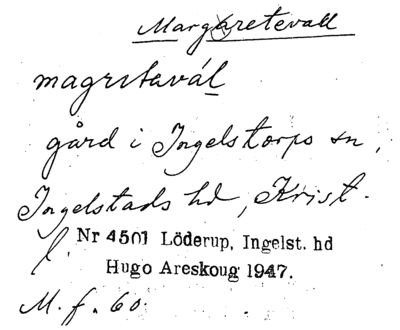 Margaretevall
magrıtavál
gård i Ingelstorps sn,
Ingelstads hd, Krist.
l.
Nr 4501 Löderup, Ingelst. hd
Hugo Areskoug 1947.
M. f. 60.